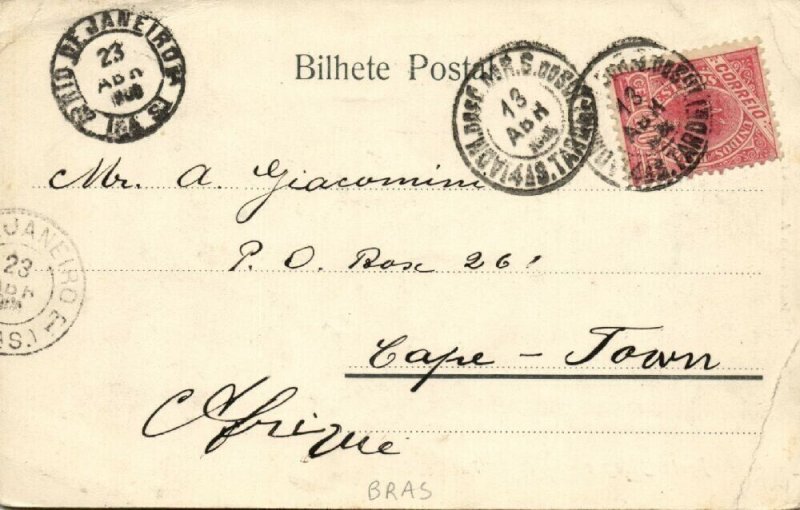 RIO DE JANEIRO
23
ABR
Bilhete Postal
13
ABR
TARDE
13
ABR
TARDE
CORREIO
Mr. A. Giacomini
P. O. Box 261
JANEIRO
23
ABR
Cape - Town
Afrique
BRAS